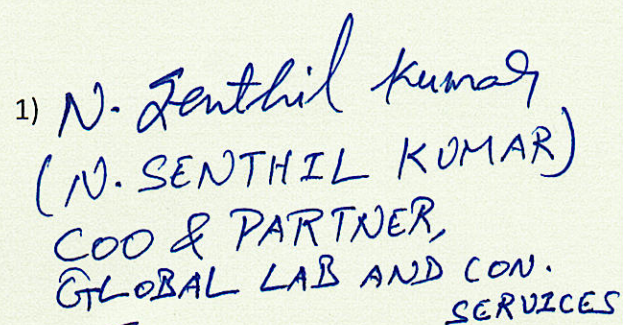 1) N. Senthil Kumar
(N. SENTHIL KUMAR)
COO & PARTNER,
GLOBAL LAB AND CON.
SERVICES